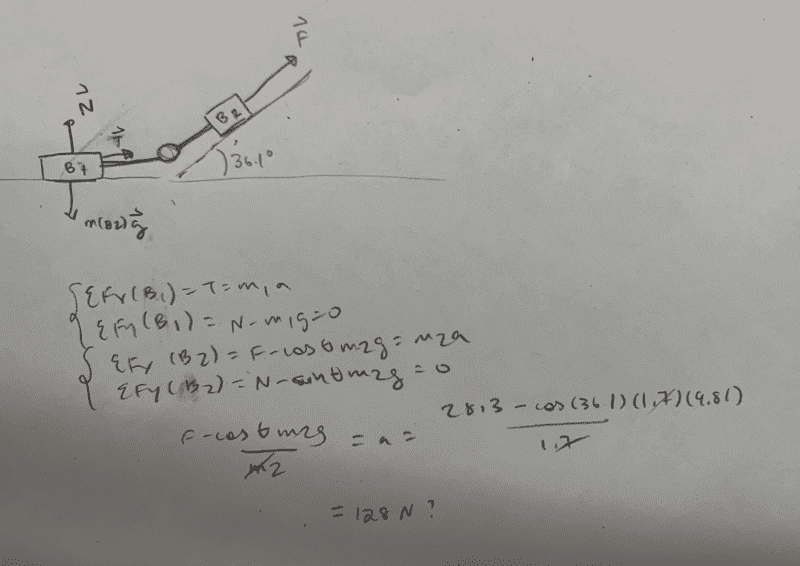 F
N
T
B2
B7
36.1°
m(B2)g
ΣFx(B1) = T = m1a
ΣFy(B1) = N - m1g = 0
ΣFx(B2) = F - cosθm2g = m2a
ΣFy(B2) = N - sinθm2g = 0
F - cosθm2g / m2 = a = 28.3 - cos(36.1)(1.7)(9.81) / 1.7
= 128 N ?